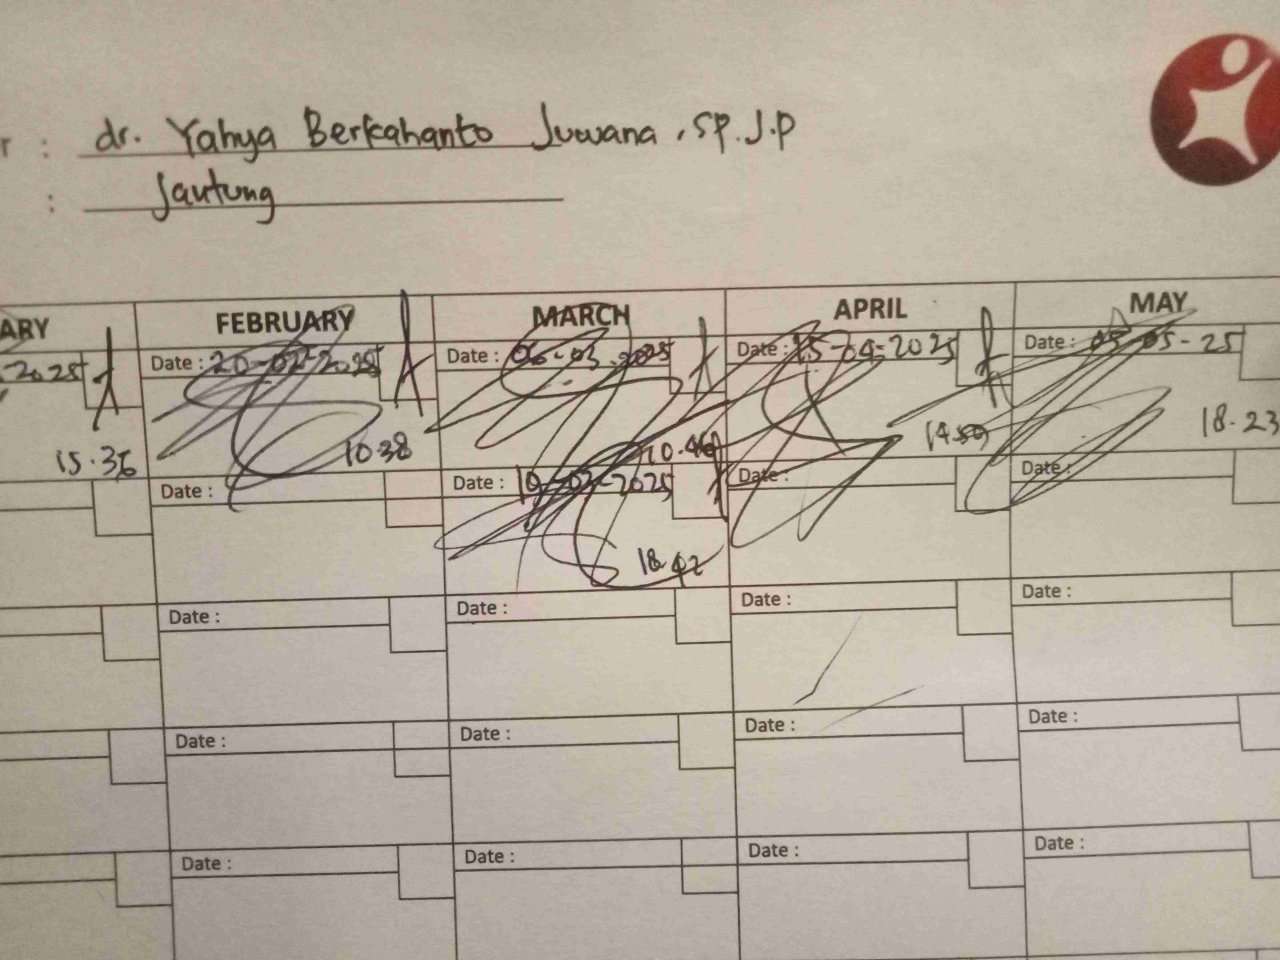 r : dr. Yahya Berkahanto Juwana, SP.J.P
: Jantung
ARY FEBRUARY MARCH APRIL MAY
2025 Date : 20-02-2025 Date : 06-03-2025 Date : 15-04-2025 Date : 05-05-25
15.36 10.38 10.46 14.59 18.23
Date : Date : 19-03-2025 Date : Date :
18.42
Date : Date : Date : Date :
Date : Date : Date : Date :
Date : Date : Date : Date :